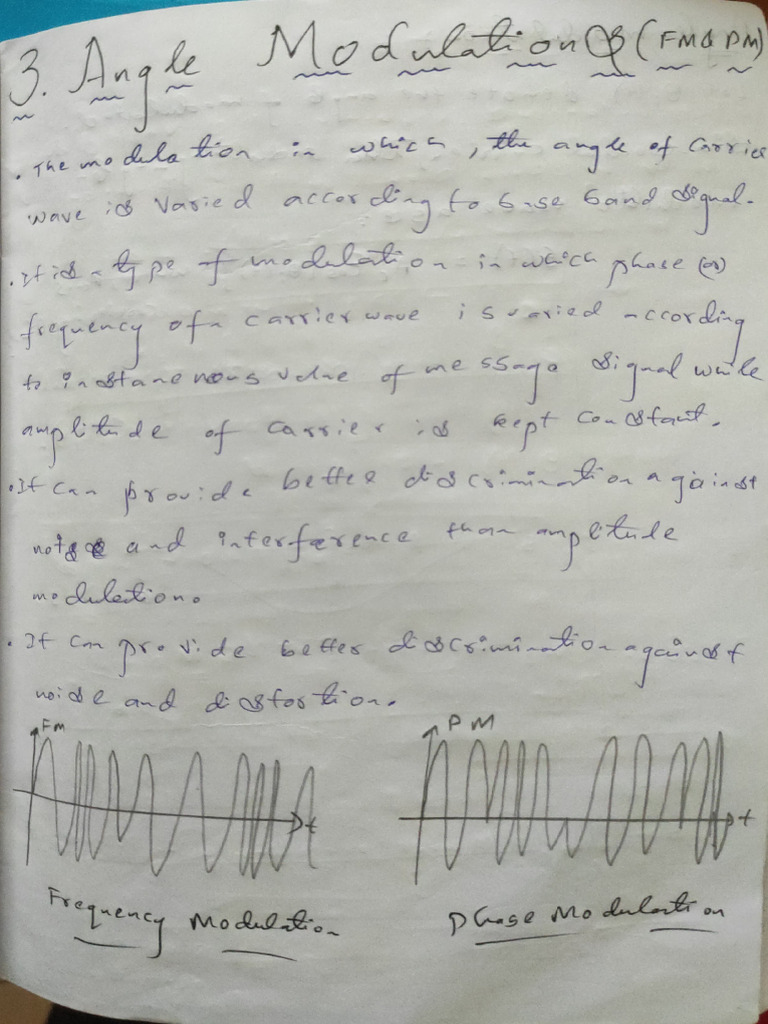 3. Angle Modulations (FM & PM)
. The modulation in which, the angle of carrier
wave is varied according to base band signal.
. It is a type of modulation in which phase (or)
frequency of a carrier wave is varied according
to instaneneous value of message signal while
amplitude of carrier is kept constant.
. It can provide better discrimination against
and interference than amplitude
modulation.
. It can provide better discrimination against
noise and distortion.
FM
PM
t
t
Frequency Modulation
Phase Modulation